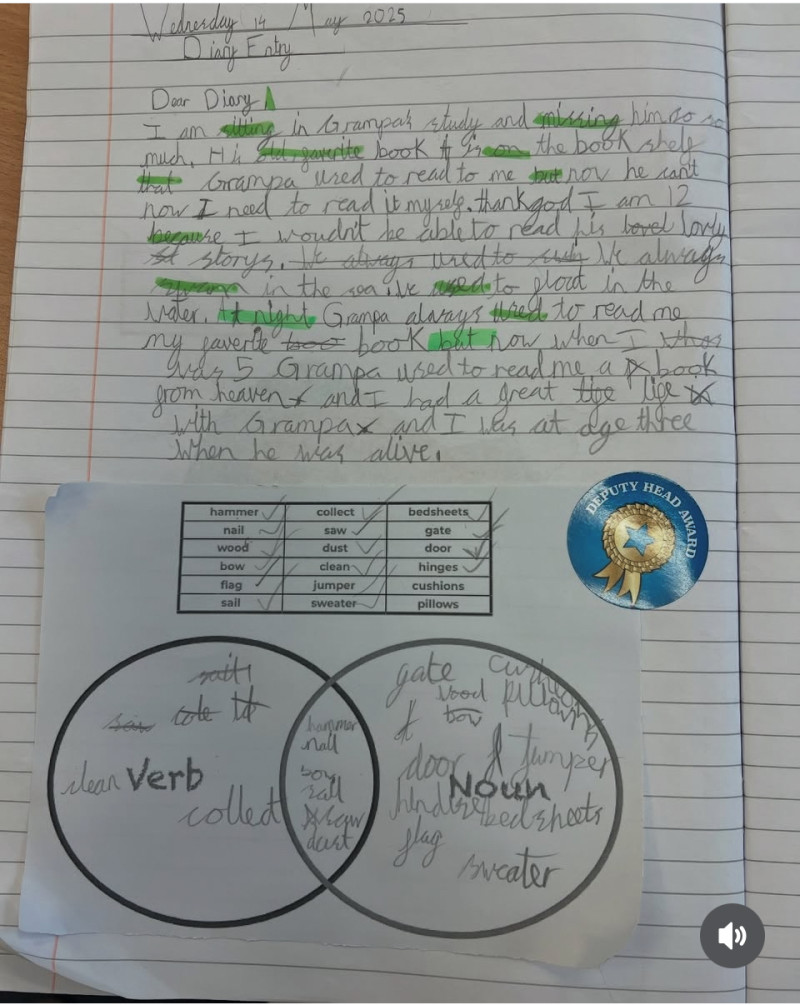 Wednesday 14 May 2025
Diary Entry
Dear Diary
I am sitting in Grampa's study and missing him so so
much, His old, faverite book is on the book shelf
that Grampa used to read to me but now he can't
now I need to read it myself. thank god I am 12
because I woudn't be able to read his lovly
storys. He always used to He always
swam in the sea. He used to float in the
water. At night Grampa always used to read me
my faverite book but now when I
was 5 Grampa used to read me a book
from heaven and I had a great life
with Grampa and I was at age three
when he was alive.
hammer collect bedsheets
nail saw gate
wood dust door
bow clean hinges
flag jumper cushions
sail sweater pillows
DEPUTY HEAD AWARD
gate
wood pillows
saw bow
hammer
nail
door jumper
clean Verb bow Noun
sail
collect saw bedsheets
dust
flag
sweater